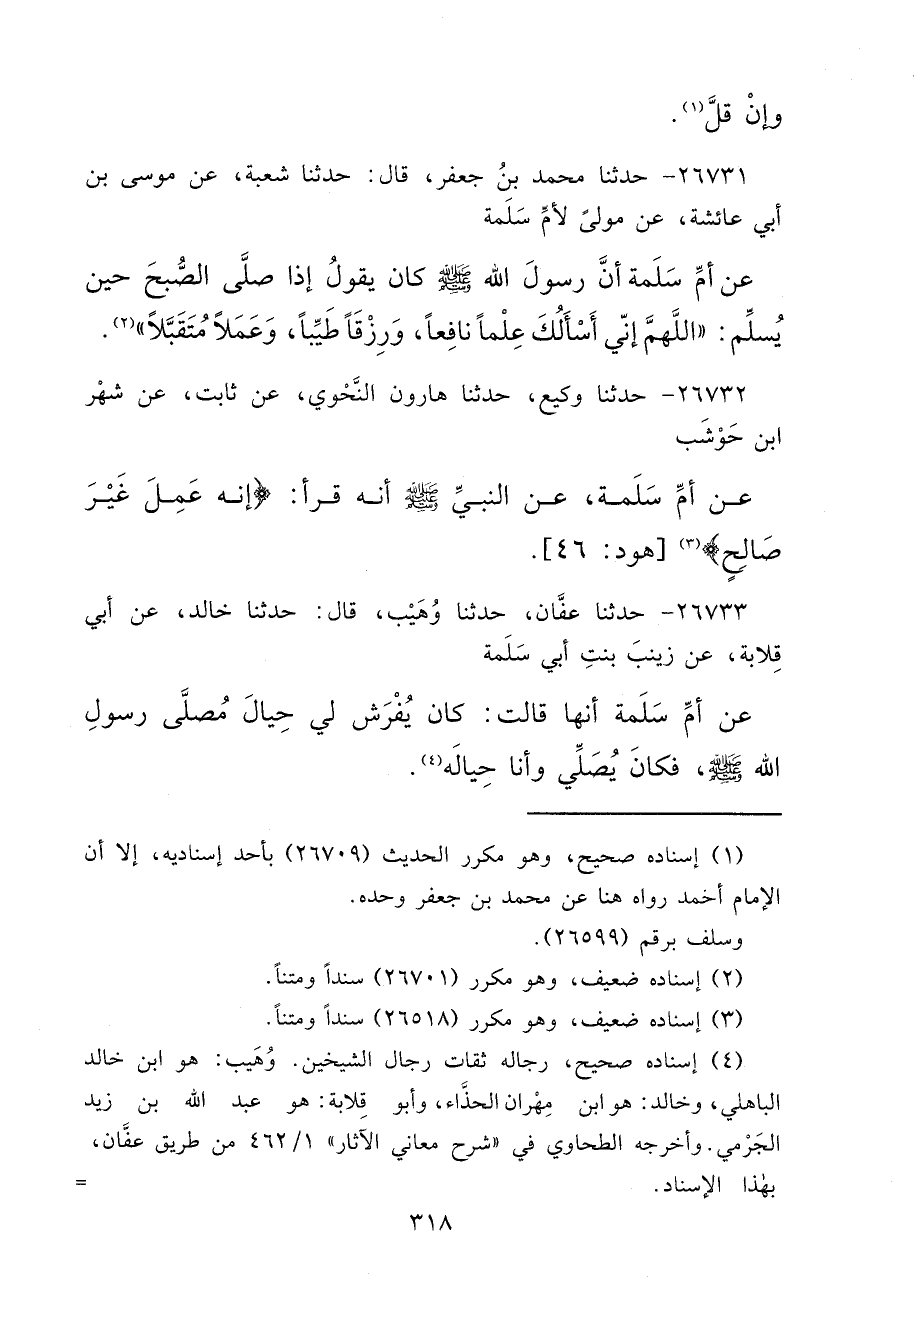 وإنْ قلَّ(١).
٢٦٧٣١- حدثنا محمد بنُ جعفر، قال: حدثنا شعبة، عن موسى بن
أبي عائشة، عن مولىً لأمِّ سَلَمة
عن أمِّ سَلَمة أنَّ رسولَ الله ﷺ كان يقولُ إذا صلَّى الصُّبحَ حين
يُسلِّم: «اللَّهمَّ إنّي أَسْأَلُكَ عِلْماً نافِعاً، ورِزْقَاً طَيِّباً، وعَمَلاً مُتَقَبَّلاً»(٢).
٢٦٧٣٢- حدثنا وكيع، حدثنا هارون النَّحْوي، عن ثابت، عن شهْر
ابن حَوْشَب
عن أمِّ سَلَمة، عن النبيِّ ﷺ أنه قرأ: ﴿إنه عَمِلَ غَيْرَ
صَالحٍ﴾(٣) [هود: ٤٦].
٢٦٧٣٣- حدثنا عفَّان، حدثنا وُهَيْب، قال: حدثنا خالد، عن أبي
قِلابة، عن زينبَ بنتِ أبي سَلَمة
عن أمِّ سَلَمة أنها قالت: كان يُفْرَش لي حِيالَ مُصلَّى رسولِ
الله ﷺ، فكانَ يُصَلِّي وأنا حِيالَه(٤).
(١) إسناده صحيح، وهو مكرر الحديث (٢٦٧٠٩) بأحد إسناديه، إلا أن
الإمام أحمد رواه هنا عن محمد بن جعفر وحده.
وسلف برقم (٢٦٥٩٩).
(٢) إسناده ضعيف، وهو مكرر (٢٦٧٠١) سنداً ومتناً.
(٣) إسناده ضعيف، وهو مكرر (٢٦٥١٨) سنداً ومتناً.
(٤) إسناده صحيح، رجاله ثقات رجال الشيخين. وُهَيب: هو ابن خالد
الباهلي، وخالد: هو ابن مِهْران الحذَّاء، وأبو قِلابة: هو عبد الله بن زيد
الجَرْمي. وأخرجه الطحاوي في «شرح معاني الآثار» ٤٦٢/١ من طريق عفَّان،
بهٰذا الإسناد. =
٣١٨